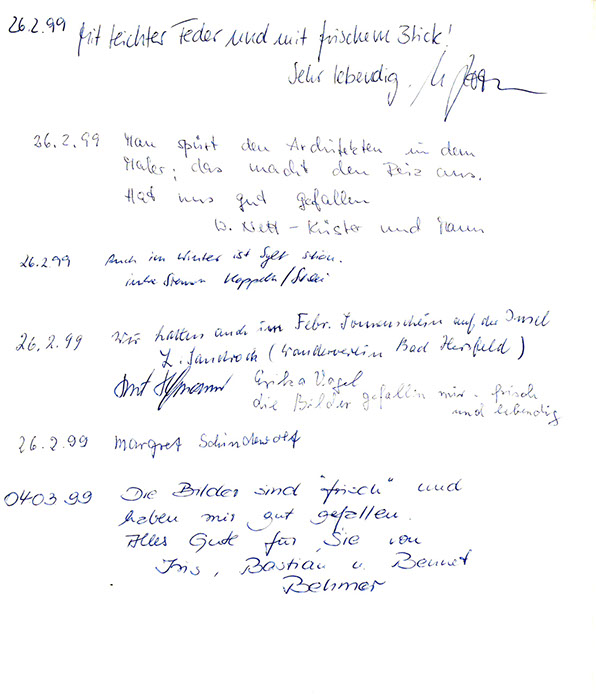 26.2.99 Mit leichter Feder und mit frischem Blick!
Sehr lebendig.
26.2.99 Man spürt den Architekten in dem
Maler; das macht den Reiz aus.
Hat uns gut gefallen
W. Nett-Küster und Mann
26.2.99 Auch im Winter ist Sylt schön.
26.2.99 Wir hatten auch im Febr. Sonnenschein auf der Insel
(Wanderverein Bad Hersfeld)
Erika Vogel
die Bilder gefallen mir - frisch
und lebendig
26.2.99 Margret Schindewolf
04 03 99 Die Bilder sind "frisch" und
haben mir gut gefallen.
Alles Gute für Sie von
Iris, Bastian u. Bennet
Behmer